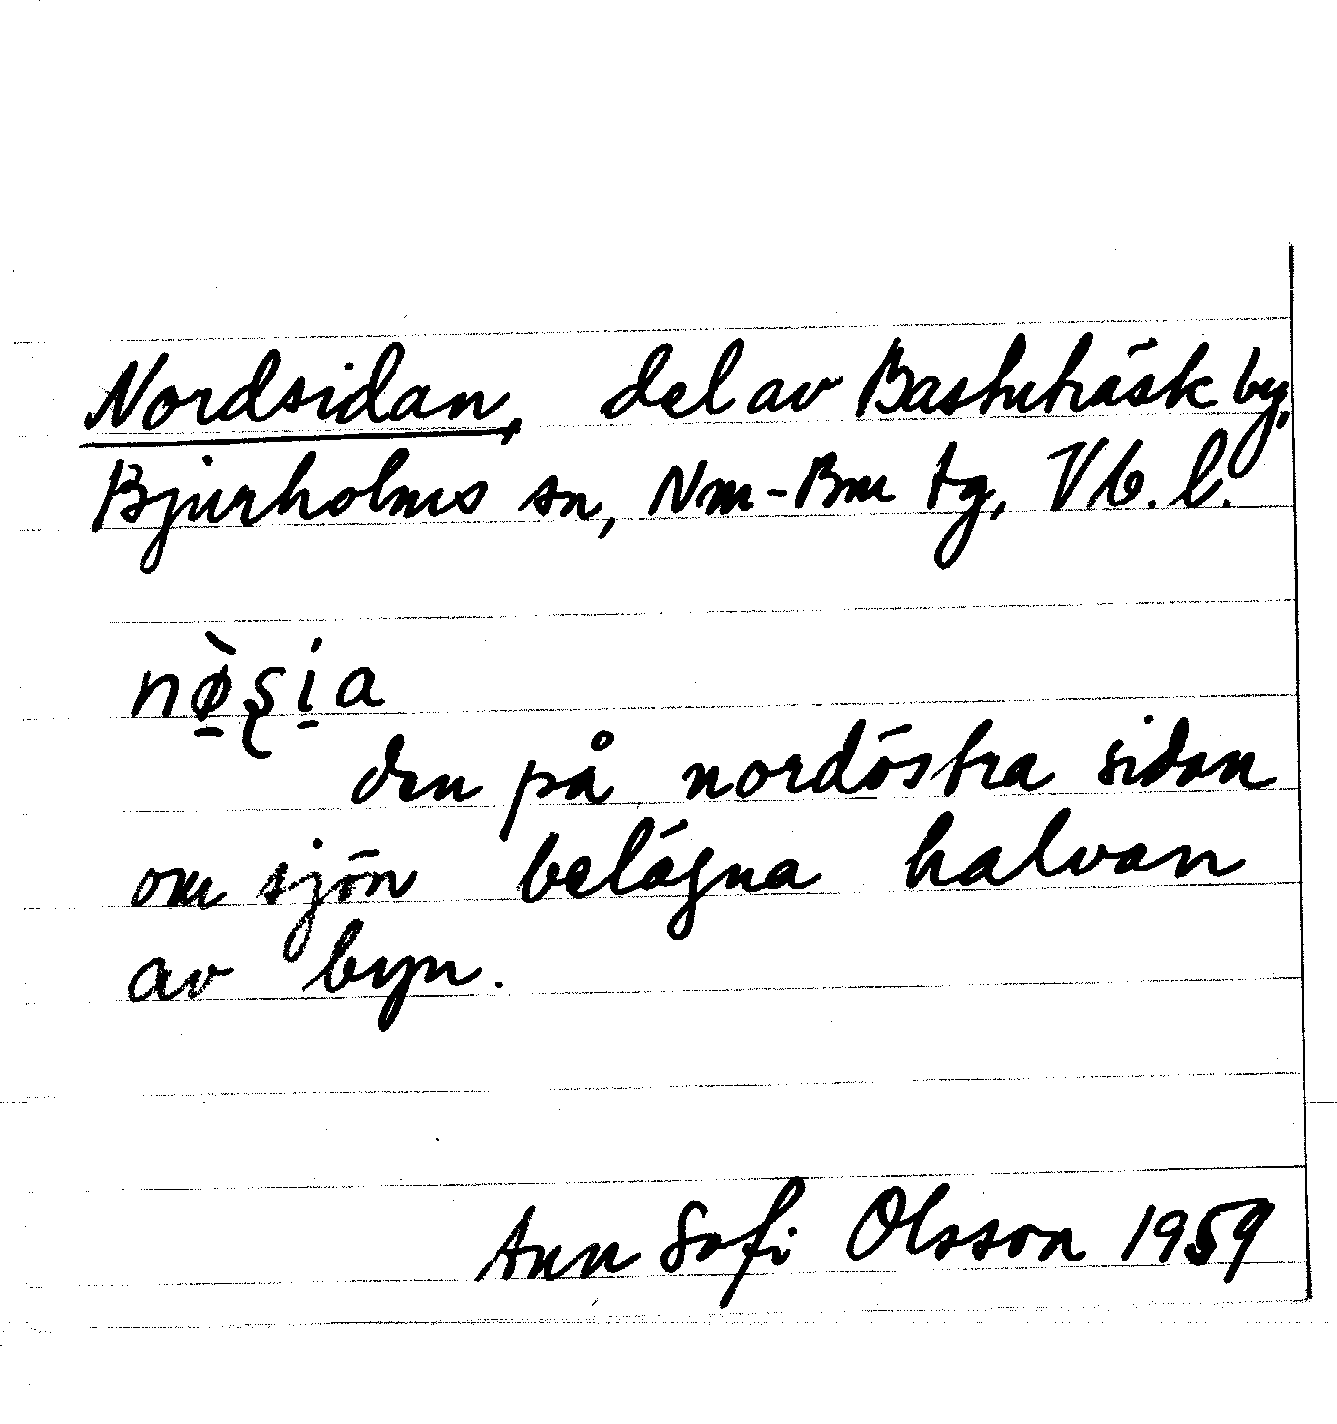 Nordsidan, del av Bastuträsk by,
Bjurholms sn, Nm-Bm tg, Vb. l.
nø̠̀ʂi̠a
den på nordöstra sidan
om sjön belägna halvan
av byn.
Ann Sofi Olsson 1959